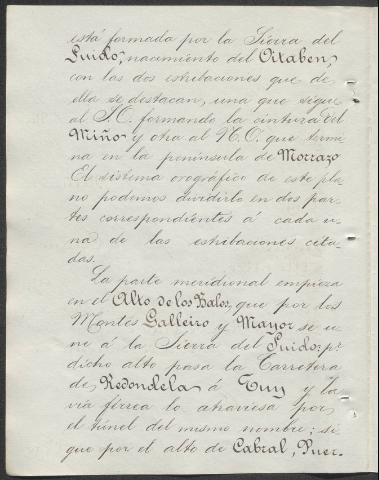 está formada por la Sierra del
Suido, nacimiento del Oitaben,
con las dos estribaciones que de
ella se destacan, una que sigue
al S.O. formando la cintura del
Miño y otra al N.O. que termi
na en la península de Morrazo
El sistema orográfico de este pla
no podemos dividirlo en dos par
tes correspondientes á cada u-
na de las estribaciones cita-
das.
La parte meridional empieza
en el Alto de los Valos, que por los
Montes Galleiro y Mayor se u-
ne á la Sierra del Suido; pr.
dicho alto pasa la Carretera
de Redondela á Tuy y la
vía férrea lo atraviesa por
el túnel del mismo nombre; si
gue por el alto de Cabral, Puer-